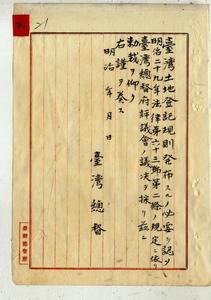 臺灣土地登記規則發布スルノ必要ヲ認メ
明治二十九年法律第六十三號第二條ノ規定ニ依リ
臺灣總督府評議會ノ議決ヲ採リ茲ニ
勅裁ヲ仰ク
右謹テ奏ス
明治 年 月 日
臺灣總督
臺灣總督府